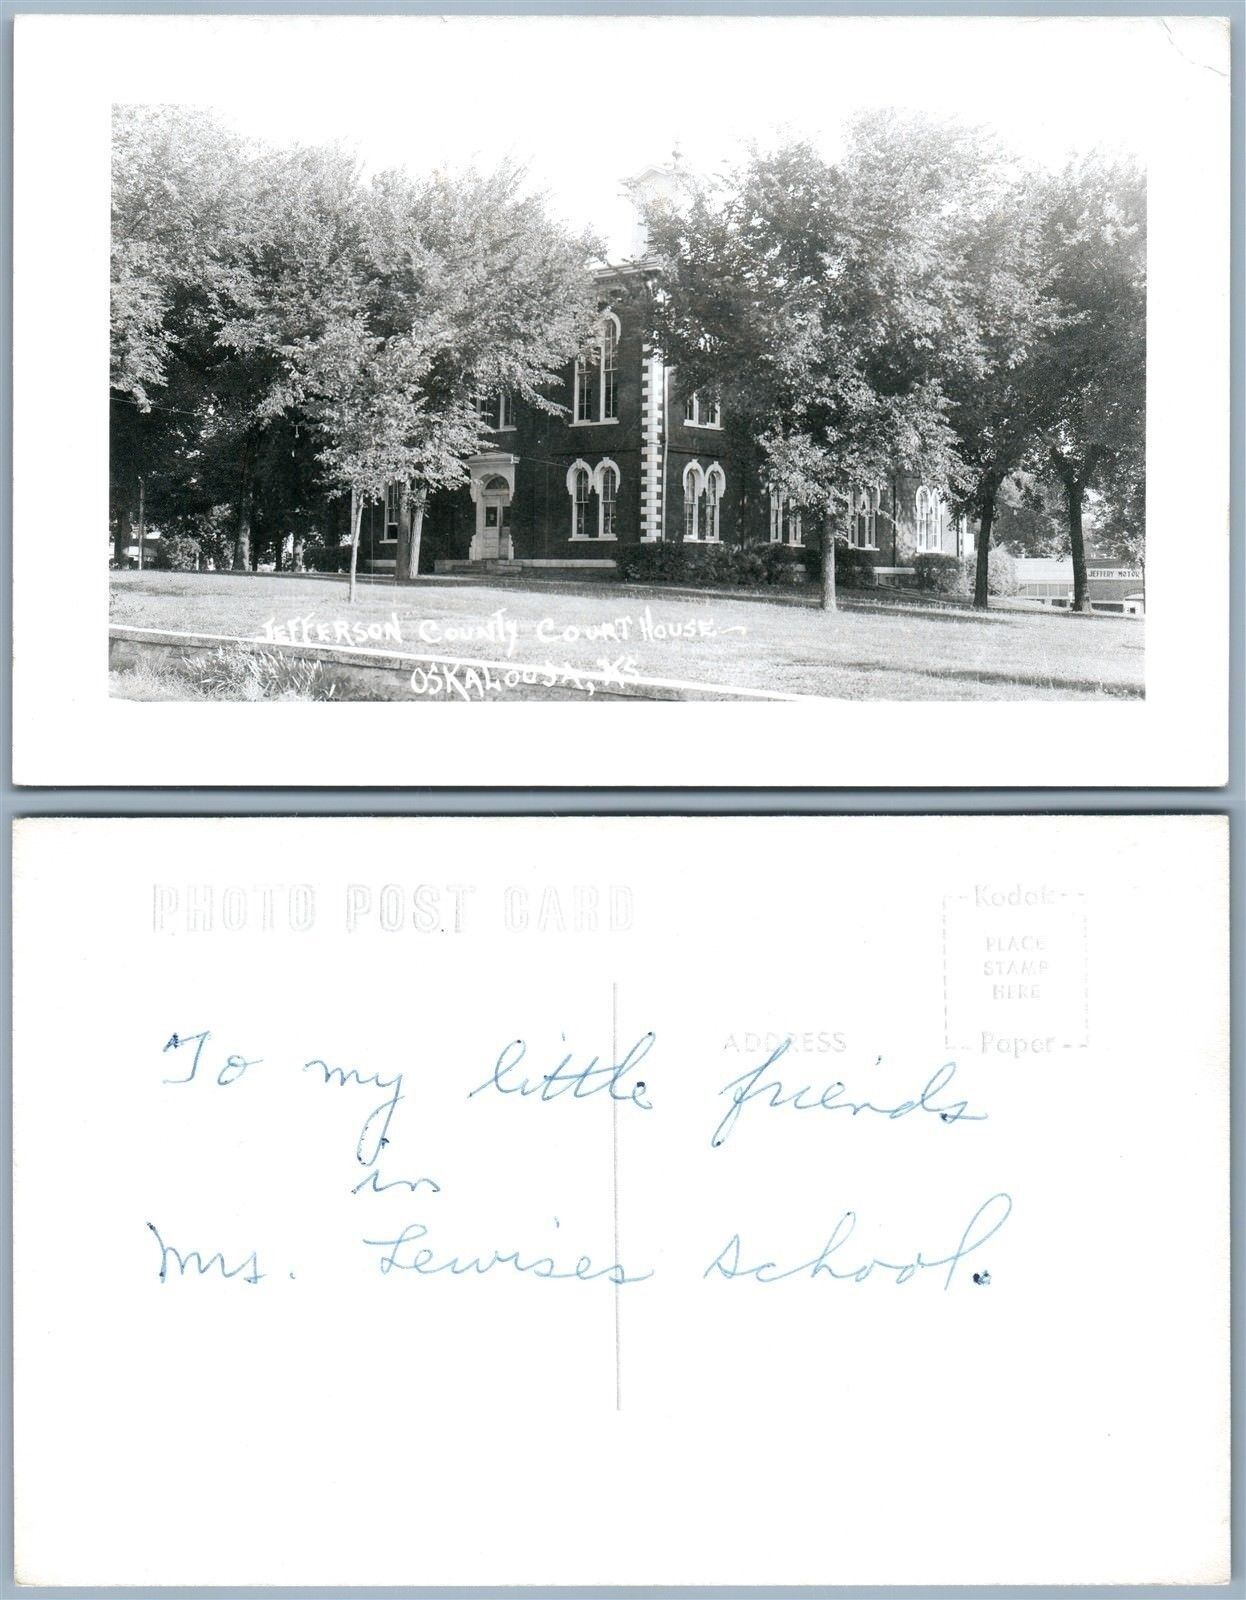 JEFFERY MOTOR
JEFFERSON COUNTY COURT HOUSE
OSKALOOSA, KS
PHOTO POST CARD
Kodak
PLACE
STAMP
HERE
Paper
ADDRESS
To my little friends
in
Mrs. Lewises school.